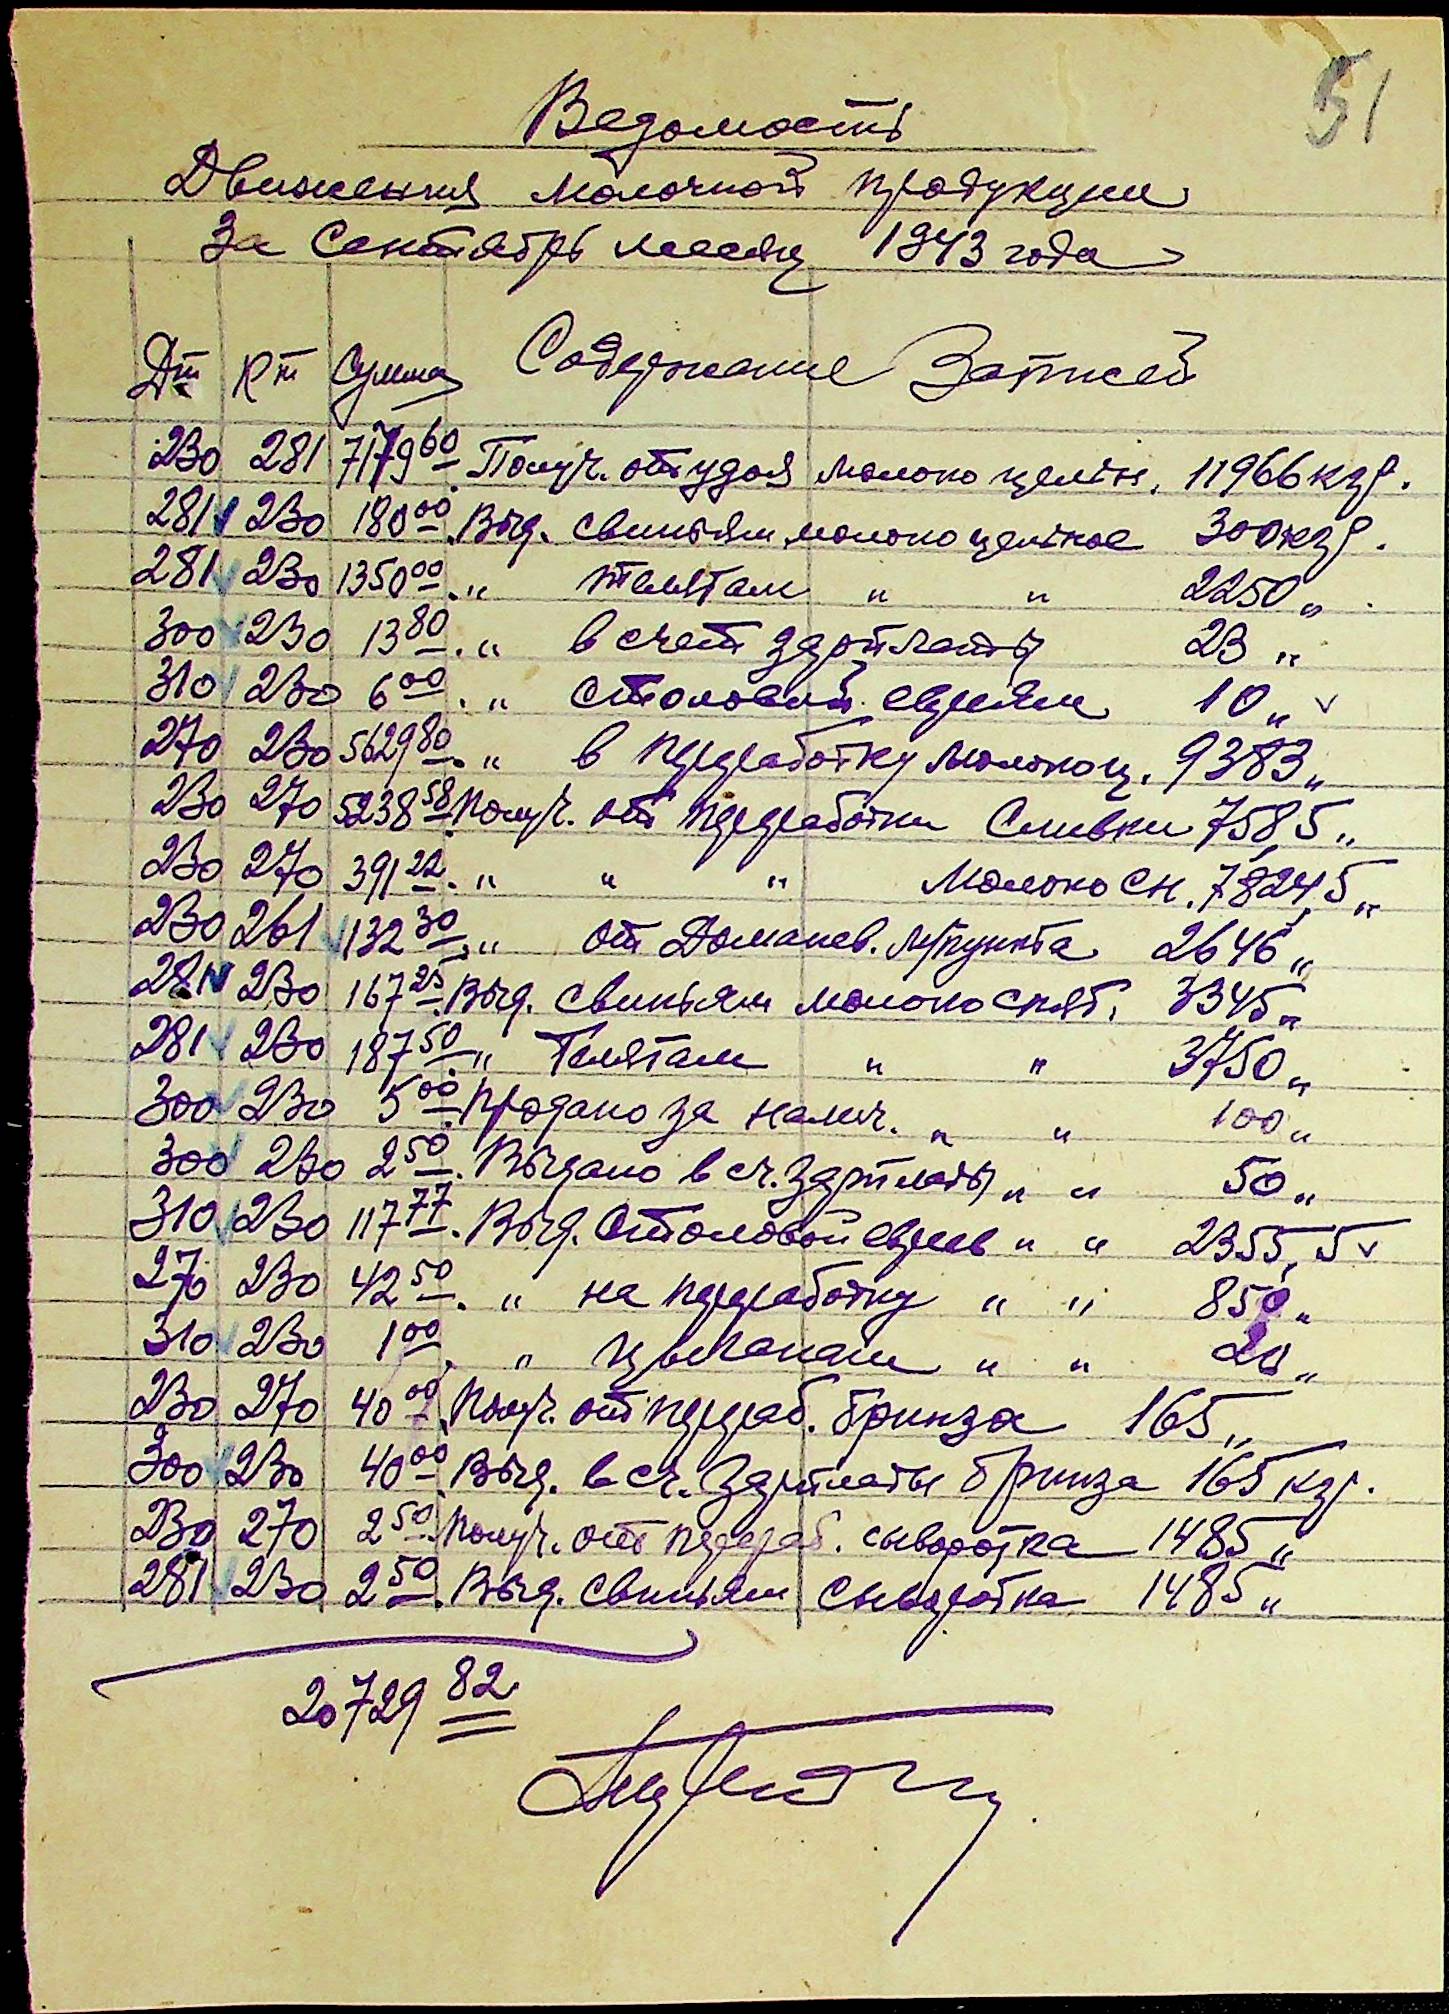 51
Ведомость
Движения молочной продукции
За Сентябрь месяц 1943 года
Дт Кт Сумма Содержание Записей
230 281 7179 60 Получ. от удоя молоко цельн. 11966 кгр.
281 230 180 00 Выд. свиньям молоко цельное 300 кгр.
281 230 1350 00 " телятам " " 2250 "
300 230 13 80 " в счет зарплаты 23 "
310 230 6 00 " столовой евреям 10 "
270 230 5629 80 " в переработку молоко ц. 9383 "
230 270 5238 58 Получ. от переработки Сливки 758,5 "
230 270 391 22 " " " молоко сн. 7824,5 "
230 261 132 30 " от Доманев. м/пункта 2646 "
281 230 167 25 Выд. свиньям молоко снят. 3345 "
281 230 187 50 " Телятам " " 3750 "
300 230 5 00 Продано за налич. " " 100 "
300 230 2 50 Выдано в сч. зарплаты " " 50 "
310 230 117 77 Выд. Столовой евреев " " 2355,5
270 230 42 50 " на переработку " " 850 "
310 230 1 00 " цыганам " " 20 "
230 270 40 00 Получ. от перераб. брынза 165 "
300 230 40 00 Выд. в сч. Зарплаты брынза 165 кгр.
230 270 2 50 Получ. от перераб. сыворотка 1485 "
281 230 2 50 Выд. свиньям сыворотка 1485 "
20729 82